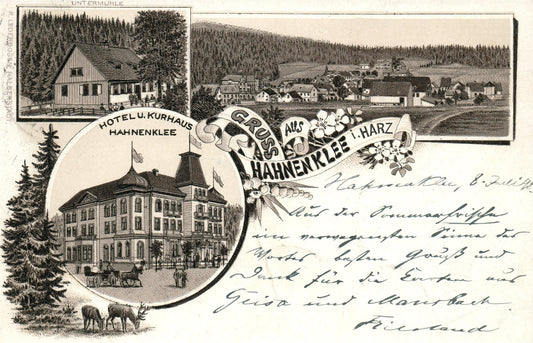 UNTERMÜHLE
HOTEL U. KURHAUS
HAHNENKLEE
GRUSS
AUS
HAHNENKLEE I. HARZ.
Hahnenklee, 8. Juli
Aus der Sommerfrische
im verwegensten Sinne des
Wortes besten Gruß und
Dank für die Karten aus
Geisa und Mansbach.